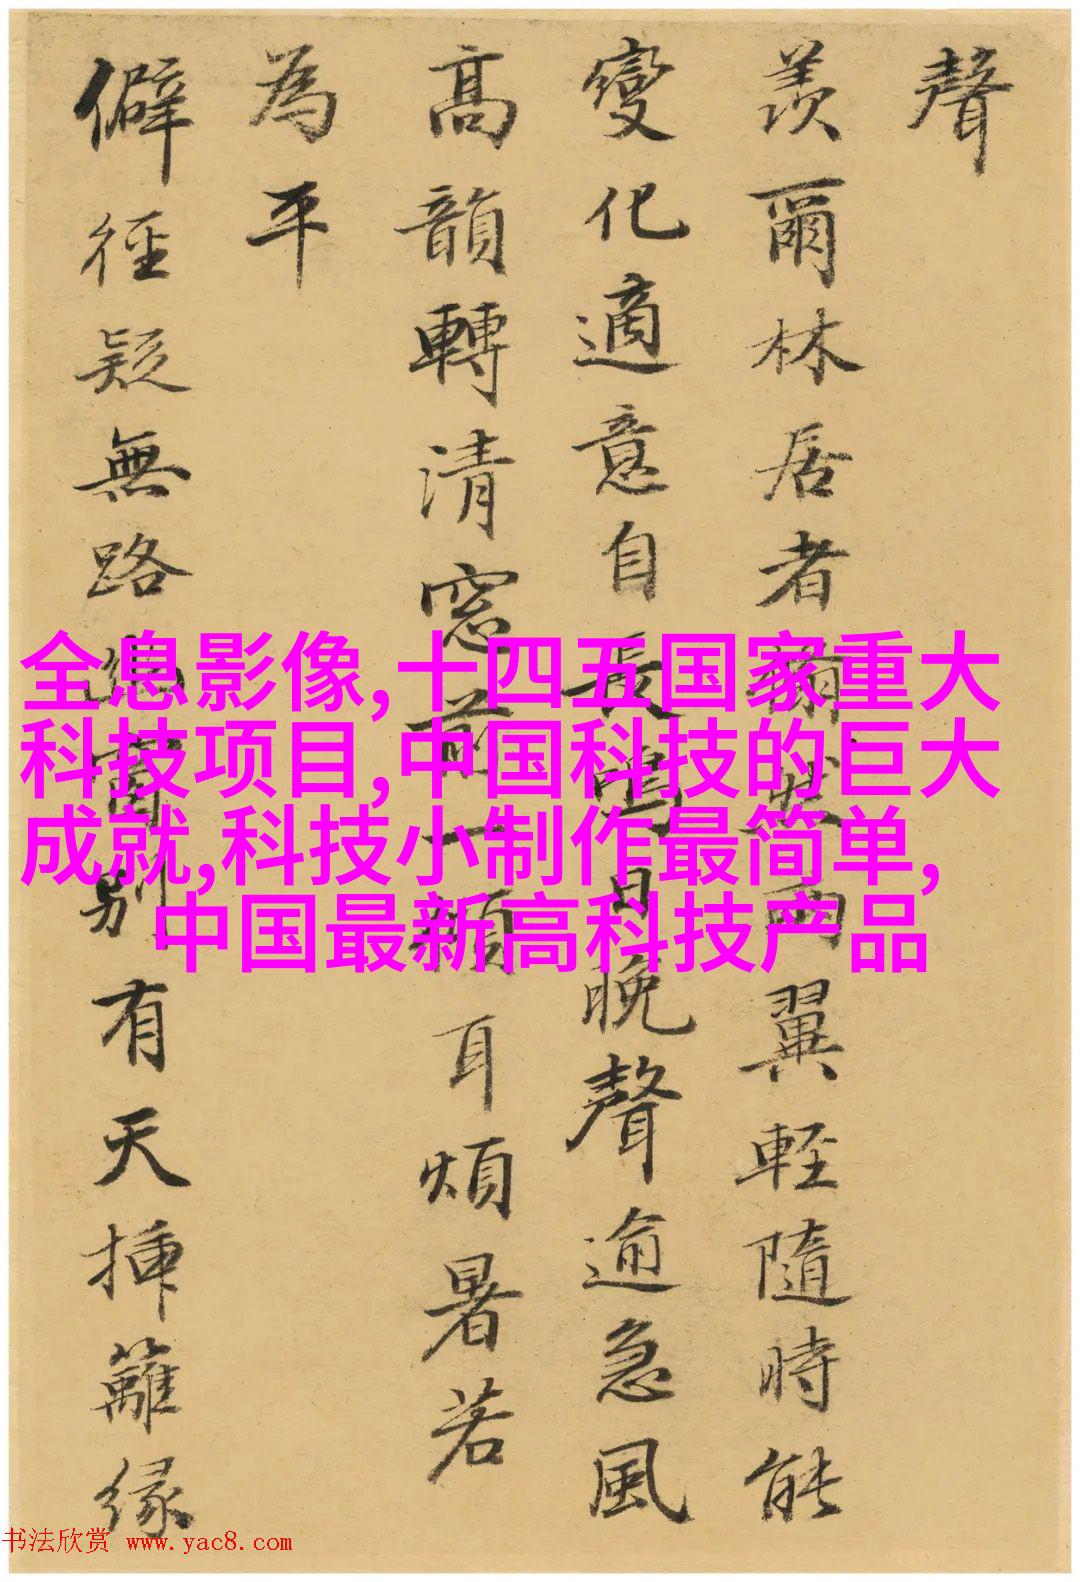 聲
羨爾林居者翩然兩翼輕隨時能
變化適意自長鳴日晚聲逾急風
高韻轉清窓前一傾耳煩暑若
為平
僻徑疑無路別有天揷籬緣
全息影像,十四五国家重大
科技项目,中国科技的巨大
成就,科技小制作最简单,
中国最新高科技产品
书法欣赏 www.yac8.com